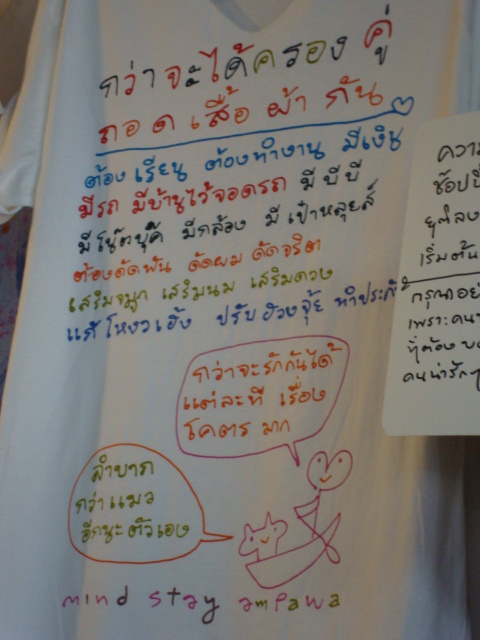 กว่าจะได้ครองคู่
ถอดเสื้อผ้ากัน
ต้องเรียน ต้องทำงาน มีเงิน
มีรถ มีบ้านไว้จอดรถ มีบีบี
มีโน๊ตบุ๊ค มีกล้อง มีเป๋าหลุยส์
ต้องดัดฟัน ดัดผม ดัดจริต
เสริมจมูก เสริมนม เสริมดวง
แก้โหงวเฮ้ง ปรับฮวงจุ้ย ทำประกั
กว่าจะรักกันได้
แต่ละที เรื่อง
โคตรมาก
ลำบาก
กว่าแมว
อีกนะตัวเอง
mind stay ampawa
ความ
ช๊อปปิ้
เริ่มต้น
กรุณาอย่
เพราะคน
ที่ต้อง
คนน่ารัก